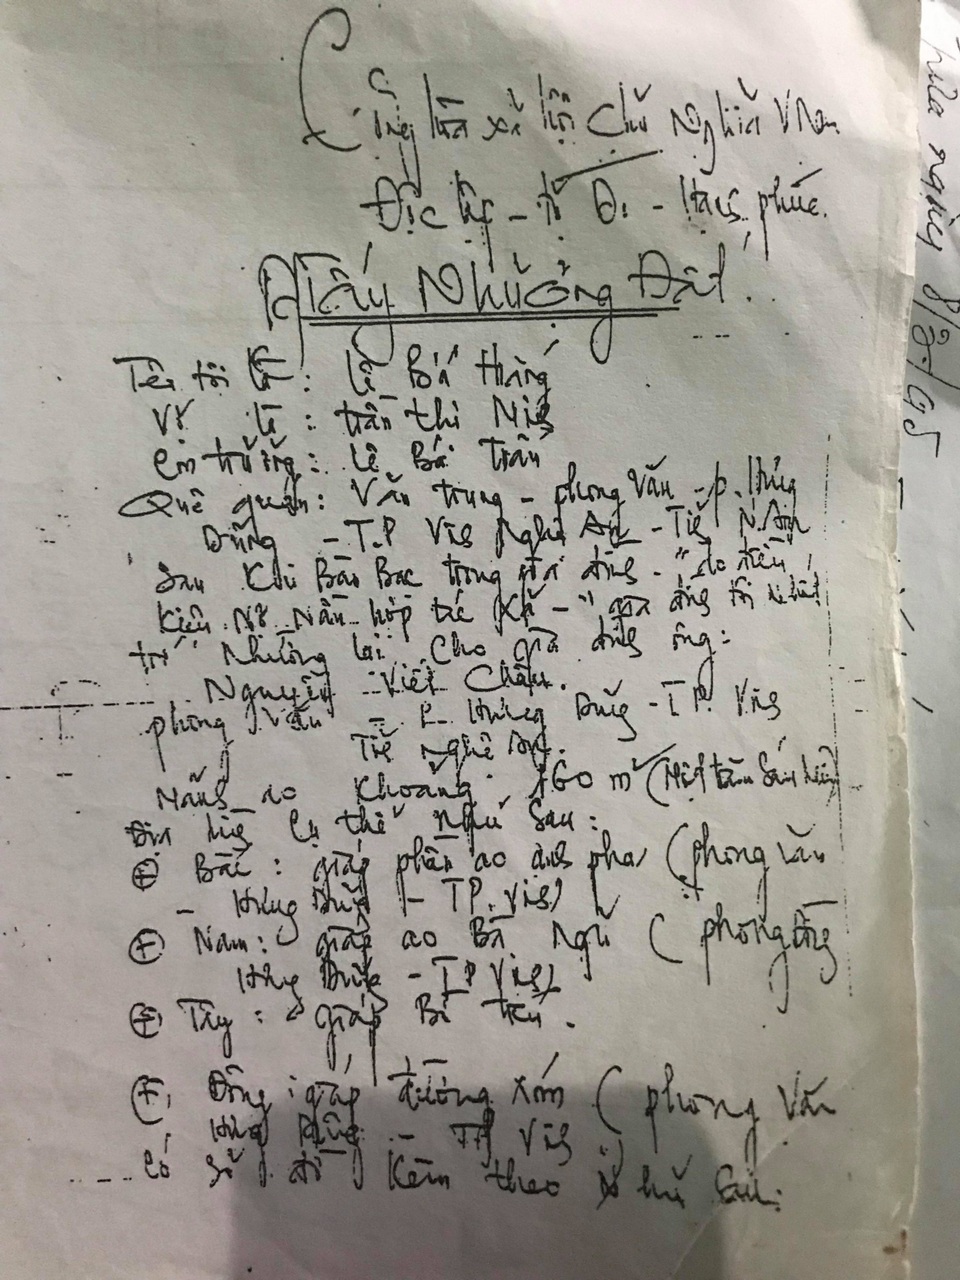 Cộng hòa xã hội chủ Nghĩa V Nam
Độc lập - tự Do - Hạnh phúc.
Giấy Nhường Đất.
Tên tôi là: Lê Bá Hồng
Vợ là: trần thị
Em trưởng: Lê Bá Trân
Quê quán: Văn trung - phong Văn - p. Hưng
Dũng - T.P Vinh Nghệ An - Tỉnh N.An
Sau khi Bàn Bạc trong gia đình - "do điều
kiện Nợ Nần hợp tác xã - " gia đình tôi
trí Nhường lại cho gia đình ông:
Nguyễn Viết Châu.
phong Văn - P. Hưng Dũng - T.P. Vinh
Tỉnh Nghệ An.
ao khoảng 160 m² (Một trăm sáu
cụ thể như sau:
+ Bắc: giáp phần ao anh pha (phong Văn
- Hưng Dũng - TP. Vinh)
+ Nam: giáp ao Bà Ngũ (phong
Hưng Dũng - T.P Vinh)
+ Tây: giáp Bà
+ Đông: giáp đường xóm (phong Văn
Hưng Dũng - TP Vinh
có sơ đồ kèm theo như sau:
ngày 8/